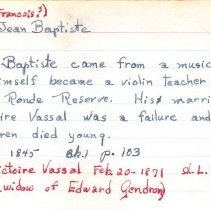 Francois?)
Jean Baptiste
Baptiste came from a music
imself became a violin teacher
Ronde Reserve. His marri
ire Vassal was a failure and
ren died young.
1845 Bk.1 p. 103
ictoire Vassal Feb. 20-1871 St. L.
widow of Edward Gendron)